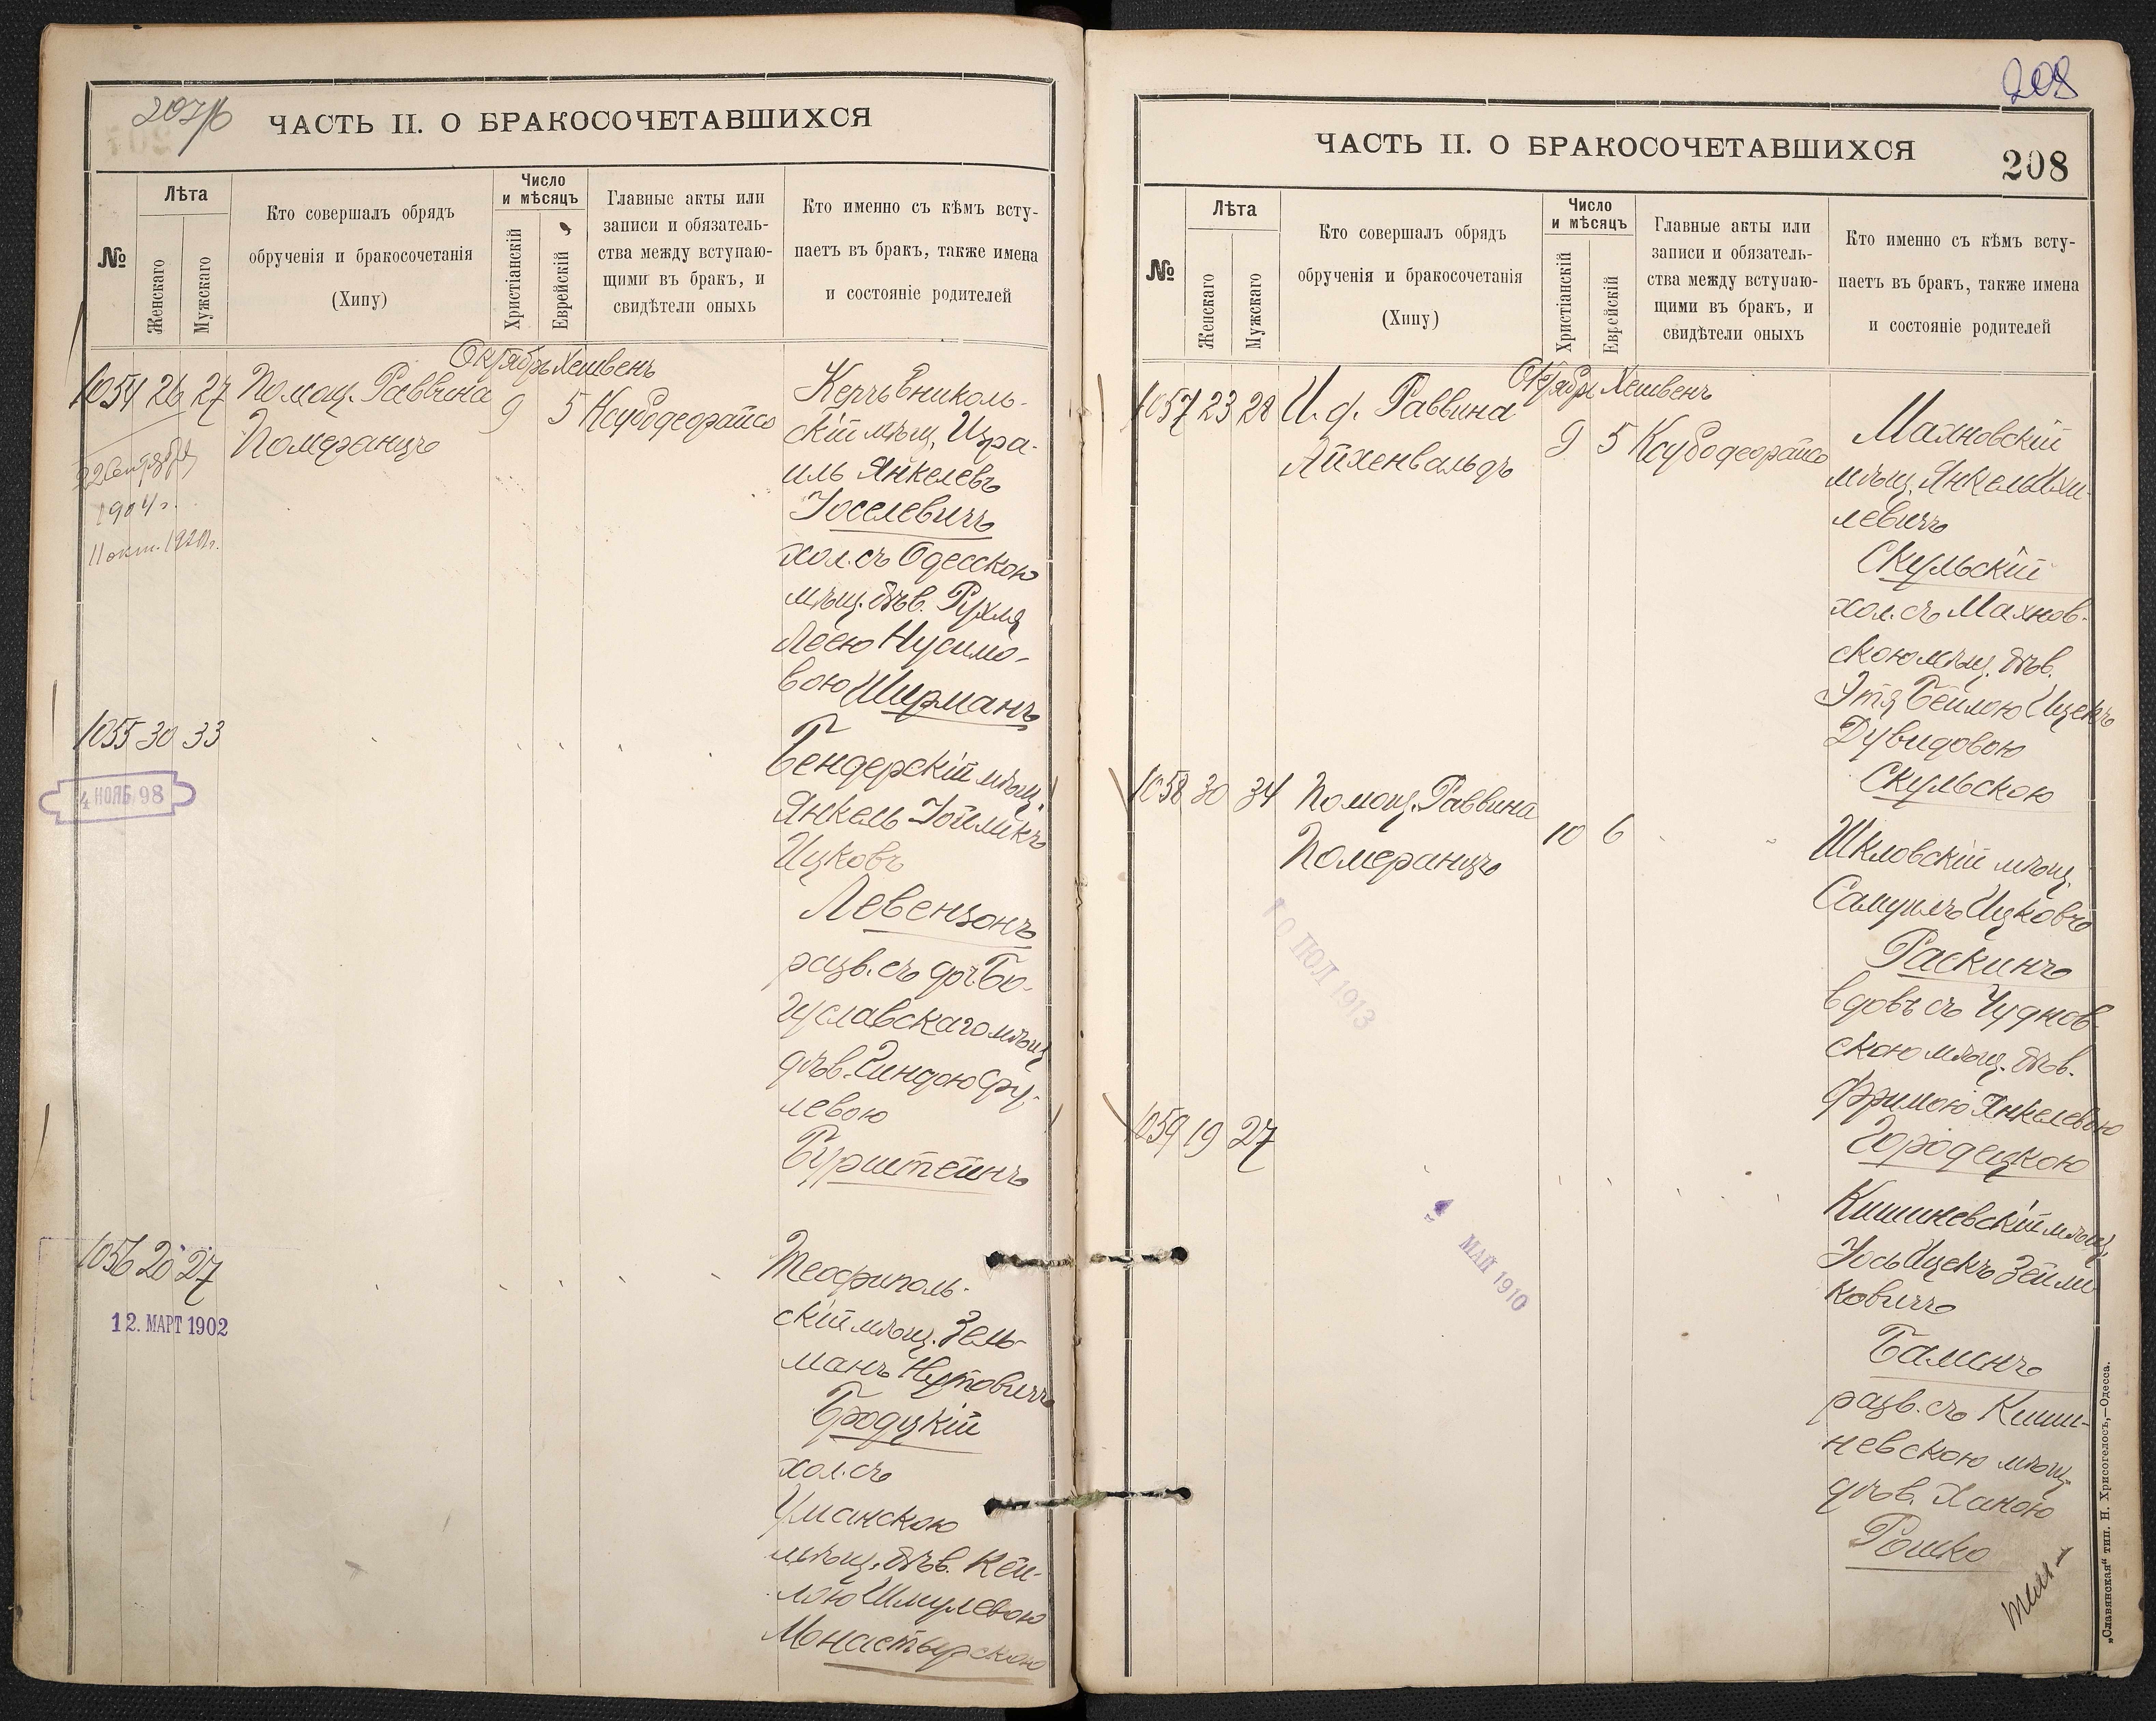 207/б
ЧАСТЬ II. О БРАКОСОЧЕТАВШИХСЯ
№
Лѣта
Женскаго
Мужскаго
Кто совершалъ обрядъ
обрученія и бракосочетанія
(Хипу)
Число
и мѣсяцъ
Христіанскій
Еврейскій
Главные акты или
записи и обязатель-
ства между вступаю-
щими въ бракъ, и
свидѣтели оныхъ
Кто именно съ кѣмъ всту-
паетъ въ бракъ, также имена
и состояніе родителей
Октябрь Хешвенъ
1054 26 27 Помощ. Раввина 9 5 Ксубодеорайсо
Померанцъ
22 Сентября
1904 г.
11 окт. 1920г.
Керчь Ениколь-
скій мѣщ. Изра-
иль Янкелевъ
Іоселевичъ
хол. съ Одесскою
мѣщ. дѣв. Рухля
Леею Нусимо-
вою Ширманъ
1055 30 33
4 НОЯБ 98
Бендерскій мѣщ.
Янкель Іойликъ
Ицковъ
Левензонъ
разв. съ доч. Бо-
гуславскаго мѣщ
дѣв. Гиндою Сру-
левою
Бурштейнъ
1056 20 27
12. МАРТ 1902
Теофиполь-
скій мѣщ. Зель-
манъ Нутовичъ
Бродцкій
хол. съ
Уманскою
мѣщ. дѣв. Кей-
лою Шмулевою
Монастырскою
208
ЧАСТЬ II. О БРАКОСОЧЕТАВШИХСЯ
208
№
Лѣта
Женскаго
Мужскаго
Кто совершалъ обрядъ
обрученія и бракосочетанія
(Хипу)
Число
и мѣсяцъ
Христіанскій
Еврейскій
Главные акты или
записи и обязатель-
ства между вступаю-
щими въ бракъ, и
свидѣтели оныхъ
Кто именно съ кѣмъ всту-
паетъ въ бракъ, также имена
и состояніе родителей
Октябрь Хешвенъ
1057 23 28 И. д. Раввина 9 5 Ксубодеорайсо
Айхенвальдъ
Махновскій
мѣщ. Янкель Ихи-
левичъ
Скульскій
хол. съ Махнов-
скою мѣщ. дѣв.
Этя Бейлою Ицекъ
Дувидовою
Скульскою
1058 30 34 Помощ. Раввина 10 6
Померанцъ
10 ІЮЛ 1913
Шкловскій мѣщ.
Самуилъ Ицковъ
Раскинъ
вдовъ съ Чуднов-
скою мѣщ. дѣв.
Фримою Янкелевою
Городецкою
1059 19 27
МАЙ 1910
Кишиневскій мѣщ.
Іось Ицекъ Зейли
ковичъ
Балинъ
разв. съ Киши-
невскою мѣщ.
дѣв. Ханою
Рошко
„Славянская“ тип. Н. Хрисогелосъ,—Одесса.